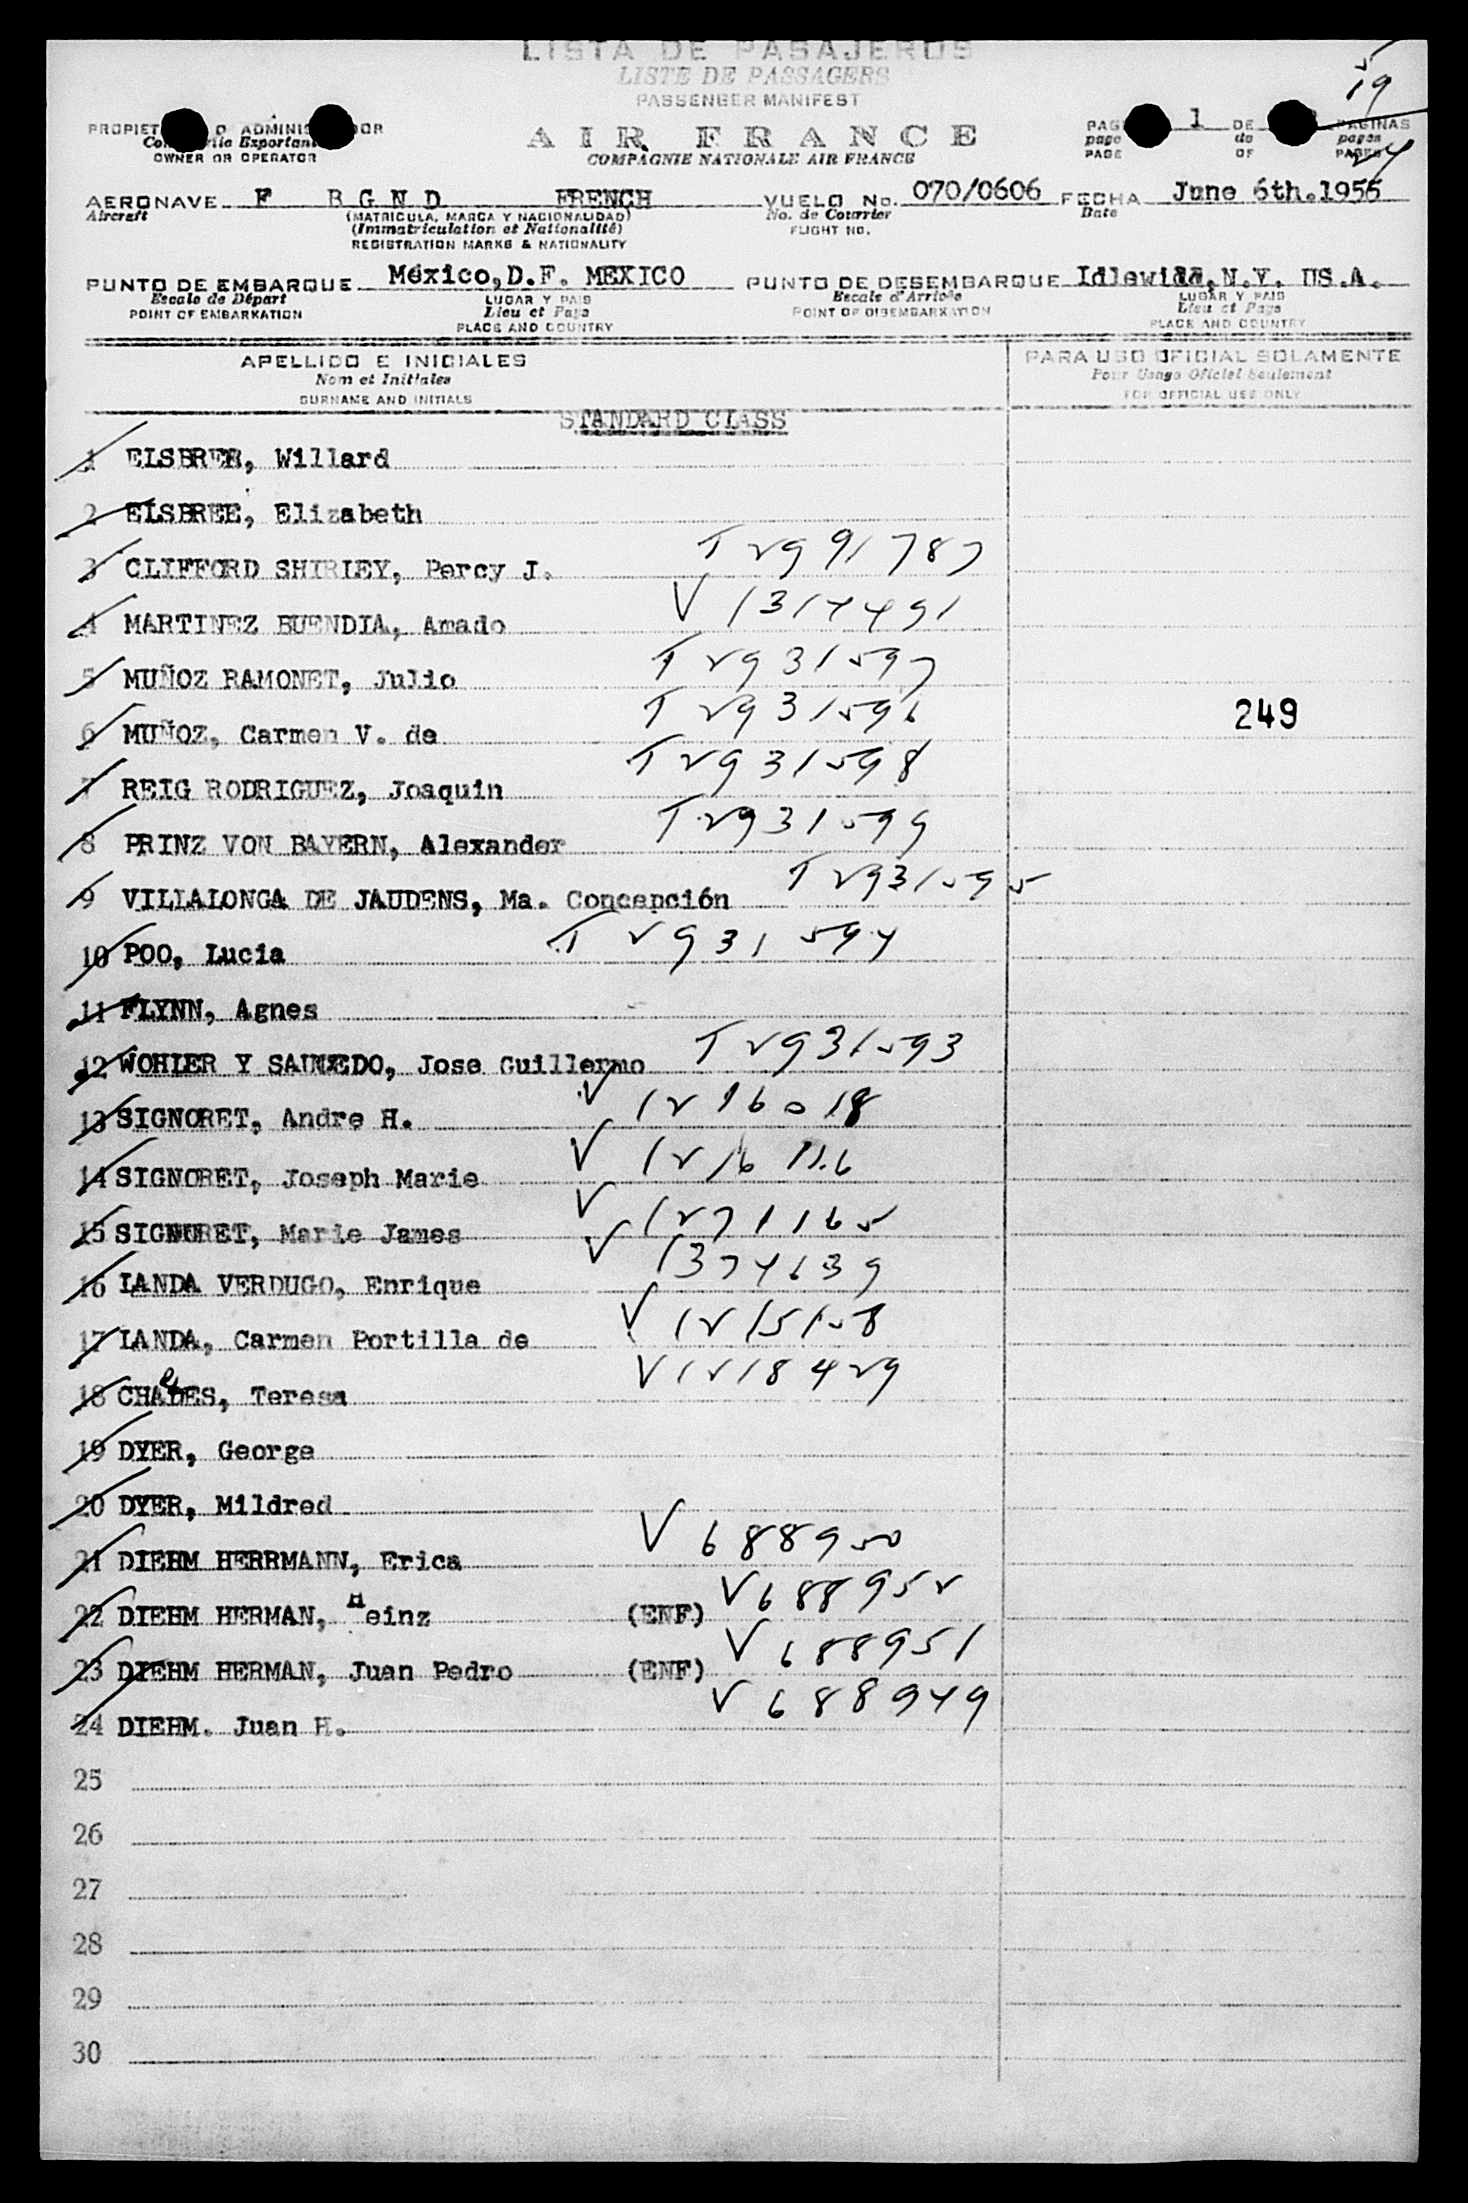 LISTA DE PASAJEROS
LISTE DE PASSAGERS
PASSENGER MANIFEST
19
AIR FRANCE
COMPAGNIE NATIONALE AIR FRANCE
OWNER OR OPERATOR
PAGE 1 DE PAGINAS
page de pages
PAGE OF PAGES
24
AERONAVE F BGND FRENCH VUELO No. 070/0606 FECHA June 6th.1955
Aircraft (MATRICULA, MARCA Y NACIONALIDAD) No. de Courrier Date
(Immatriculation et Nationalité) FLIGHT NO.
REGISTRATION MARKS & NATIONALITY
PUNTO DE EMBARQUE México,D.F. MEXICO PUNTO DE DESEMBARQUE Idlewild,N.Y. US.A.
Escale de Départ LUGAR Y PAIS Escale d'Arrivée LUGAR Y PAIS
POINT OF EMBARKATION Lieu et Pays POINT OF DISEMBARKATION Lieu et Pays
PLACE AND COUNTRY PLACE AND COUNTRY
APELLIDO E INICIALES PARA USO OFICIAL SOLAMENTE
Nom et Initiales Pour Usage Officiel Seulement
SURNAME AND INITIALS FOR OFFICIAL USE ONLY
STANDARD CLASS
1 ELSBREE, Willard
2 ELSBREE, Elizabeth
3 CLIFFORD SHIRLEY, Percy J. T 2991787
4 MARTINEZ BUENDIA, Amado V 1314491
5 MUÑOZ RAMONET, Julio T 2931597
6 MUÑOZ, Carmen V. de T 2931596
249
7 REIG RODRIGUEZ, Joaquin T 2931598
8 PRINZ VON BAYERN, Alexander T 2931599
9 VILLALONGA DE JAUDENS, Ma. Concepción T 2931595
10 POO, Lucia T 2931594
11 FLYNN, Agnes
12 WOHLER Y SAUCEDO, Jose Guillermo T 2931593
13 SIGNORET, Andre H. V 1216018
14 SIGNORET, Joseph Marie V
15 SIGNORET, Marie James V 1271165
16 LANDA VERDUGO, Enrique V 1374639
17 LANDA, Carmen Portilla de V 1215158
18 CHADES, Teresa V 1218429
19 DYER, George
20 DYER, Mildred
21 DIEHM HERRMANN, Erica V 688950
22 DIEHM HERMAN, Heinz (ENF) V 688952
23 DIEHM HERMAN, Juan Pedro (ENF) V 688951
24 DIEHM. Juan H. V 688949
25
26
27
28
29
30